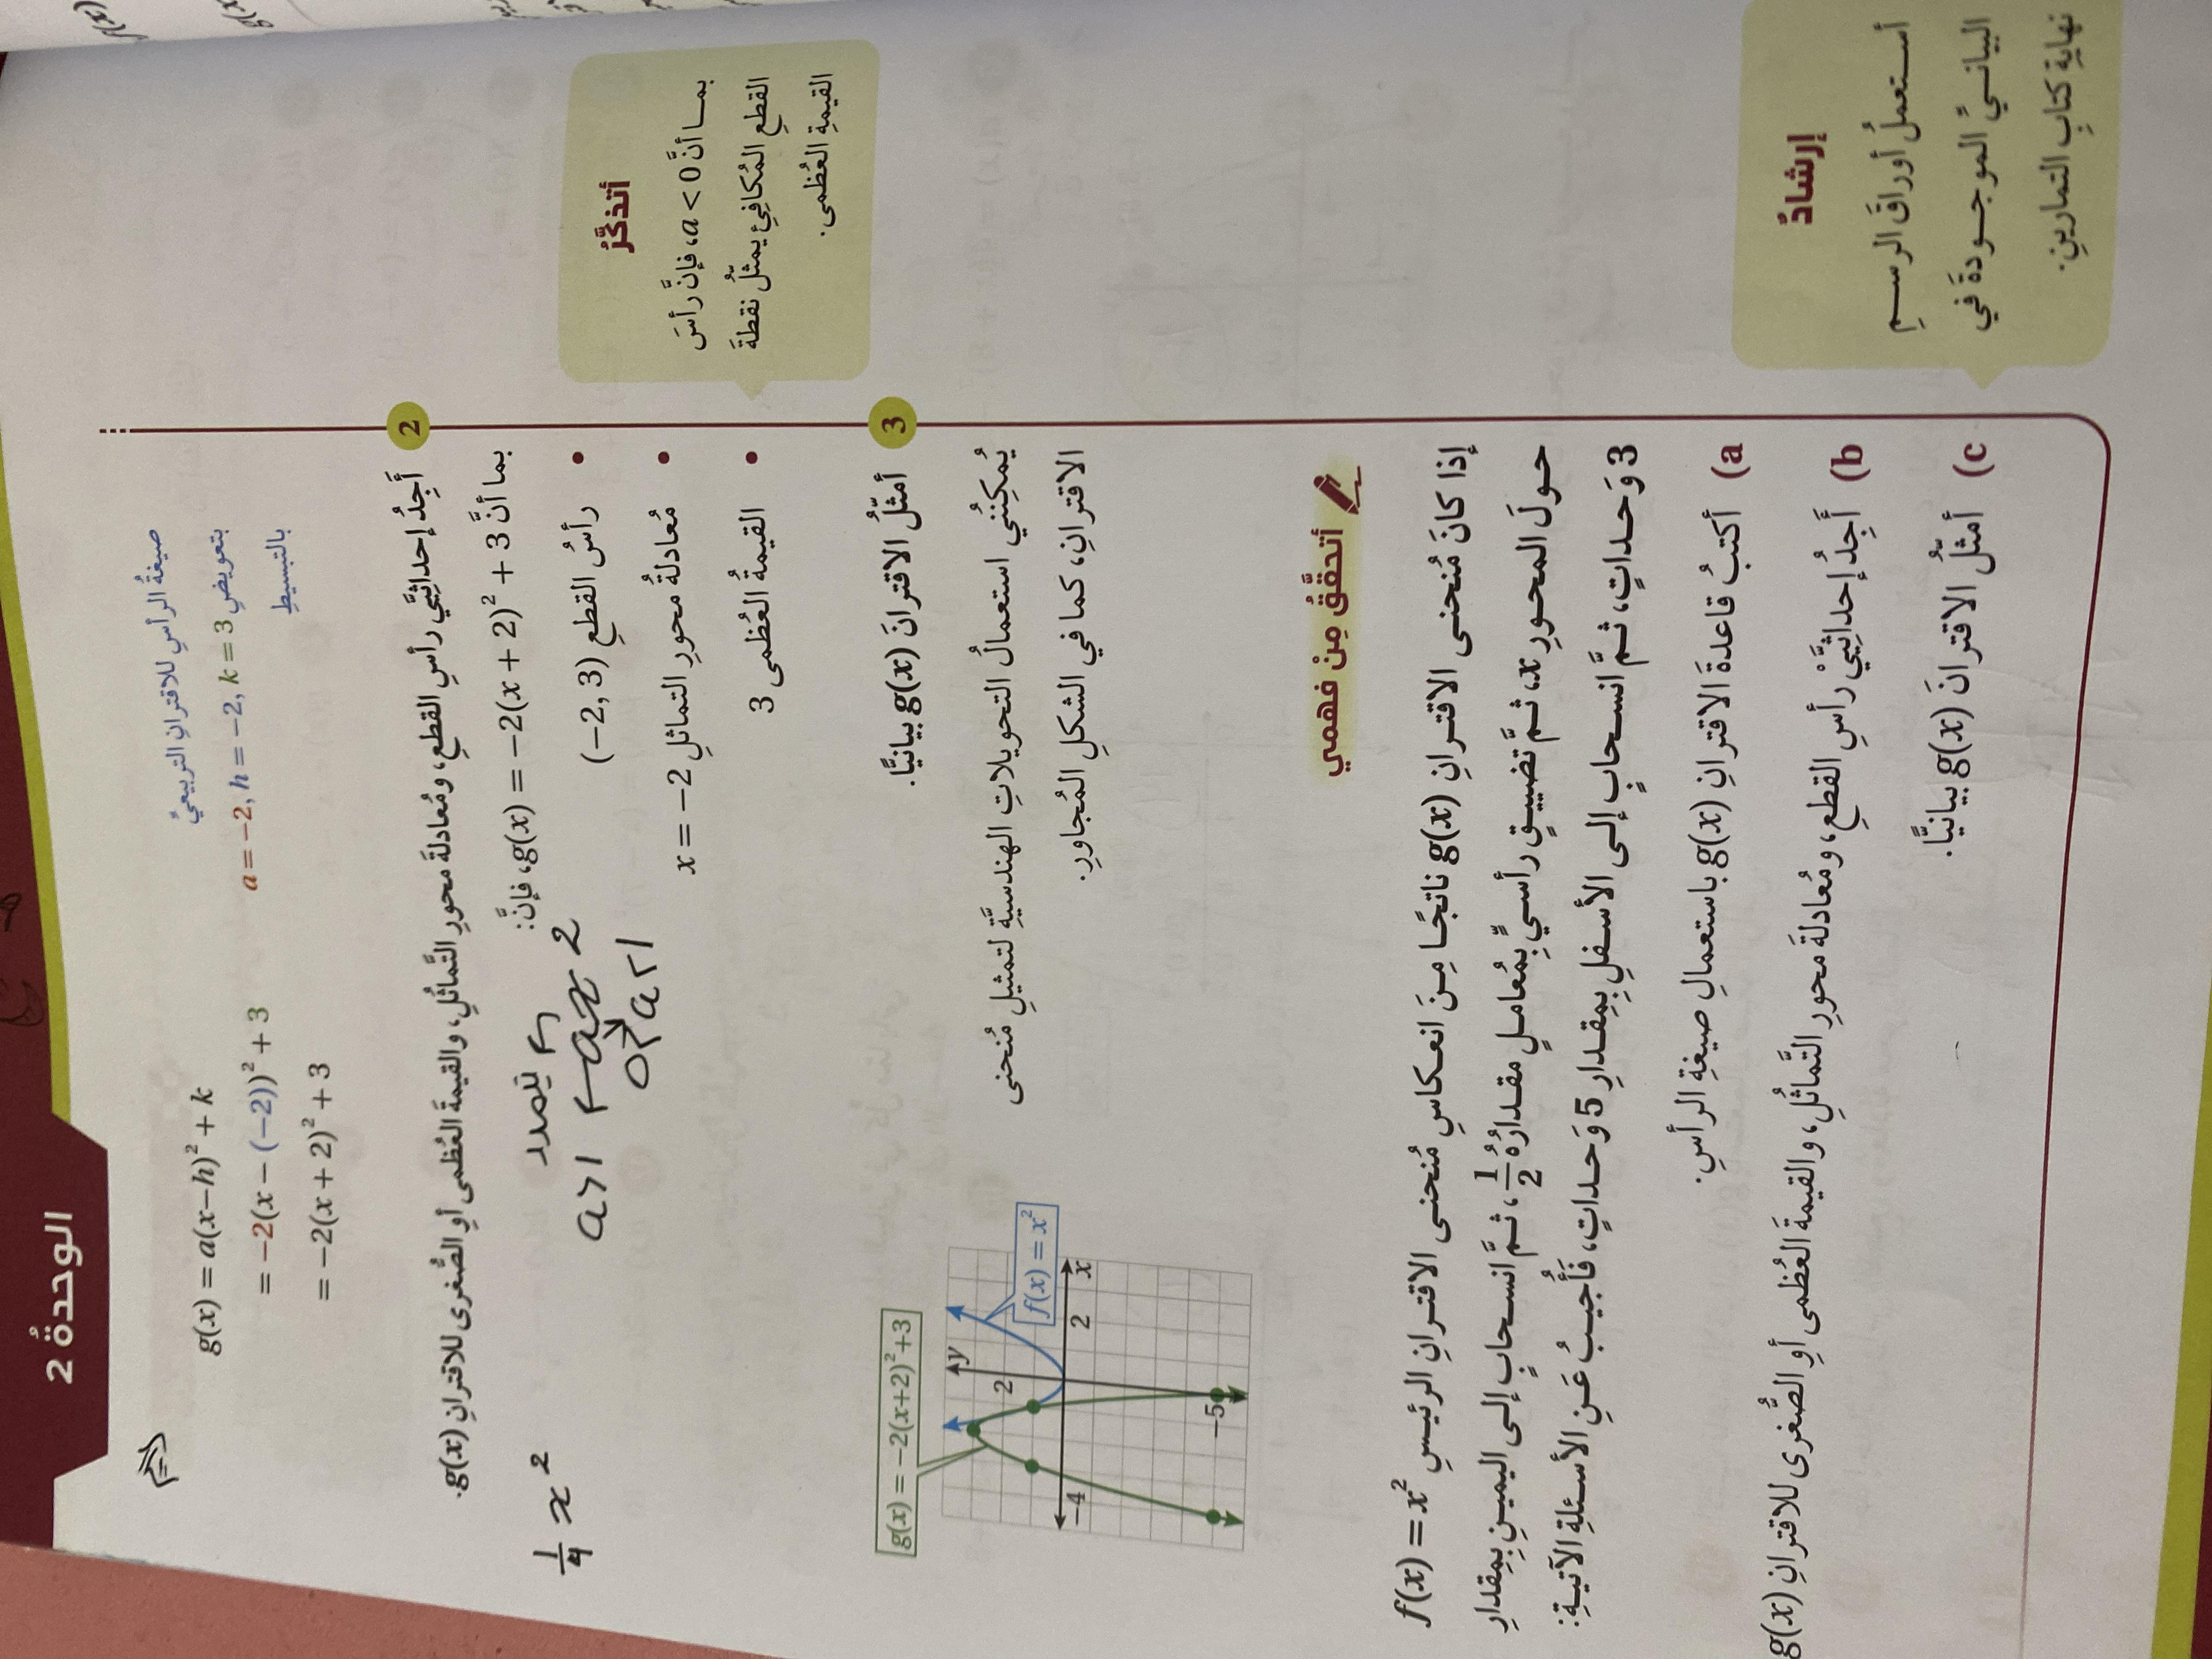 الوحدةُ 2
g(x) = a(x−h)² + k صيغةُ الرأسِ للاقترانِ التربيعيِّ
= −2(x − (−2))² + 3 بتعويضِ a = −2, h = −2, k = 3
= −2(x + 2)² + 3 بالتبسيطِ
2 أَجِدُ إحداثِيَّيْ رأسِ القطعِ، ومُعادلةَ محورِ التَّماثُلِ، والقيمةَ العُظمى أوِ الصُّغرى للاقترانِ g(x).
بما أنَّ g(x) = −2(x + 2)² + 3، فإنَّ:
• رأسُ القطعِ (−2, 3)
• مُعادلةُ محورِ التماثلِ x = −2
• القيمةُ العُظمى 3
تمدد
a>1
ax²
0>a<1
¼ x²
أتذكَّرُ
بمـا أنَّ a < 0، فإنَّ رأسَ
القطعِ المُكافِئِ يمثّلُ نقطةَ
القيمةِ العُظمى.
3 أمثّلُ الاقترانَ g(x) بيانيًّا.
يُمكِنُني استعمالُ التحويلاتِ الهندسيَّةِ لتمثيلِ مُنحنى
الاقترانِ، كما في الشكلِ المُجاورِ.
g(x) = −2(x+2)²+3
f(x) = x²
y
x
2
2
−4
−5
أتحقَّقُ مِن فهمي
إذا كانَ مُنحنى الاقترانِ g(x) ناتجًا مِنَ انعكاسِ مُنحنى الاقترانِ الرئيسِ f(x) = x²
حولَ المحورِ x، ثمَّ تضييقٍ رأسيٍّ بِمُعاملٍ مقدارُهُ 1/2، ثمَّ انسحابٍ إلى اليمينِ بِمِقدارِ
3 وَحداتٍ، ثمَّ انسحابٍ إلى الأسفلِ بِمِقدارِ 5 وَحداتٍ، فَأُجيبُ عَنِ الأسئلةِ الآتيةِ:
a) أكتبُ قاعدةَ الاقترانِ g(x) باستعمالِ صيغةِ الرأسِ.
b) أَجِدُ إحداثِيَّيْ رأسِ القطعِ، ومُعادلةَ محورِ التَّماثُلِ، والقيمةَ العُظمى أوِ الصُّغرى للاقترانِ g(x)
c) أمثّلُ الاقترانَ g(x) بيانيًّا.
إرشادٌ
أستعملُ أوراقَ الرسمِ
البيانيِّ الموجودةَ في
نهايةِ كتابِ التمارينِ.